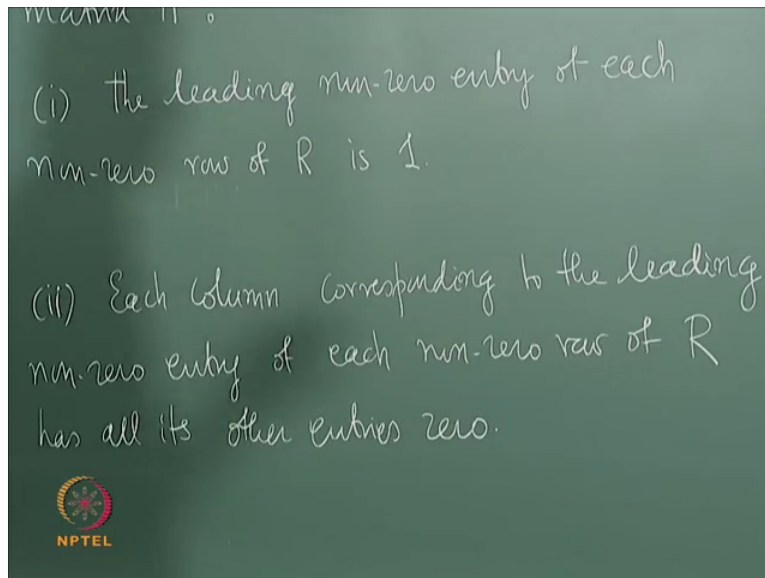 matrix if :
(i) The leading non-zero entry of each
non-zero row of R is 1.
(ii) Each column corresponding to the leading
non-zero entry of each non-zero row of R
has all its other entries zero.
NPTEL